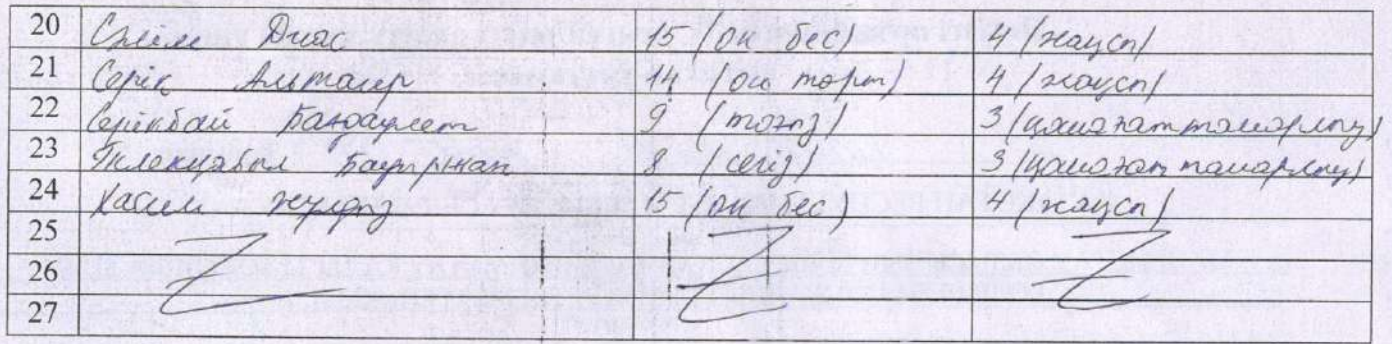 20 Сәлім Диас 15 (он бес) 4 (жақсы)
21 Серік Альтаир 14 (он төрт) 4 (жақсы)
22 Серікбай Бақдәулет 9 (тоғыз) 3 (қанағаттанарлық)
23 Тілекқабыл Бауыржан 8 (сегіз) 3 (қанағаттанарлық)
24 Хасен Жұлдыз 15 (он бес) 4 (жақсы)
25
26
27